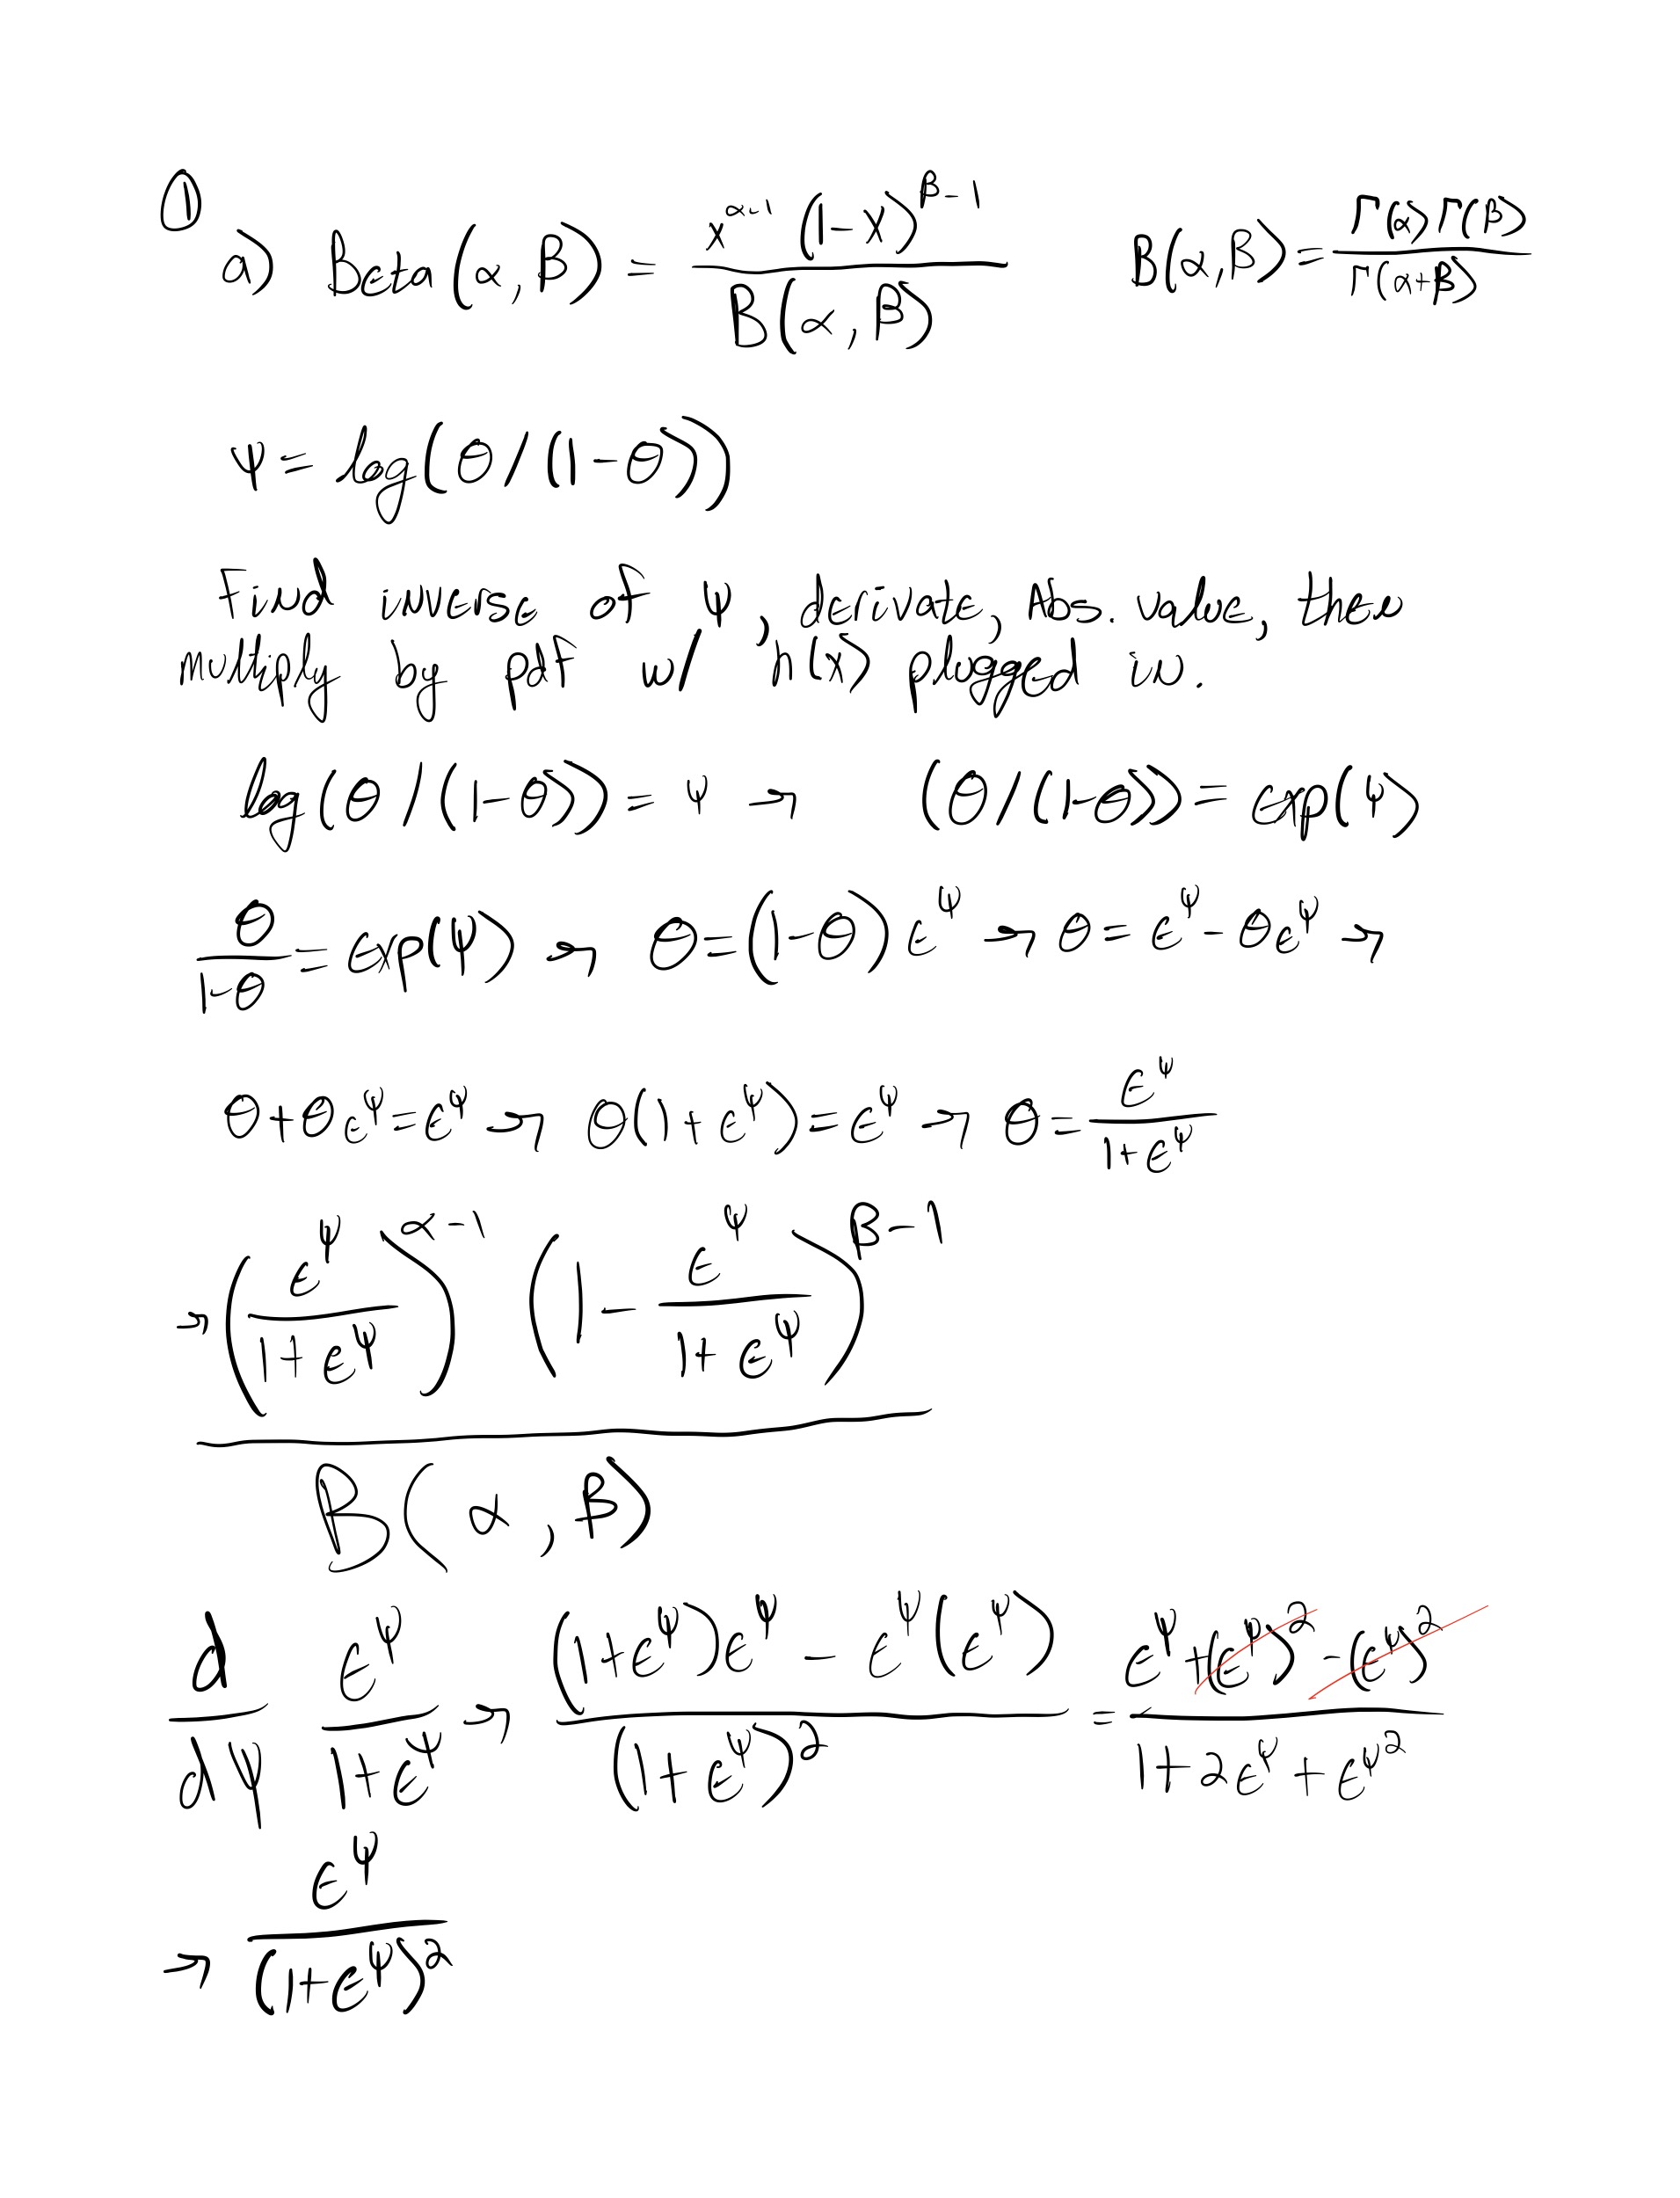 ①
a) Beta(α,β) = x^(α-1) (1-x)^(β-1) / B(α,β)     B(α,β) = Γ(α)Γ(β) / Γ(α+β)
ψ = log(θ/(1-θ))
Find inverse of ψ, derivate, Abs. value, then
multiply by pdf w/ h(x) plugged in.
log(θ/(1-θ)) = ψ → (θ/(1-θ)) = exp(ψ)
θ/(1-θ) = exp(ψ) → θ = (1-θ)e^ψ → θ = e^ψ - θe^ψ →
θ + θe^ψ = e^ψ → θ(1+e^ψ) = e^ψ → θ = e^ψ / (1+e^ψ)
→ (e^ψ / (1+e^ψ))^(α-1) (1 - e^ψ / (1+e^ψ))^(β-1) / B(α,β)
d/dψ e^ψ / (1+e^ψ) → ((1+e^ψ)e^ψ - e^ψ(e^ψ)) / (1+e^ψ)^2 = (e^ψ + (e^ψ)^2 - (e^ψ)^2) / (1 + 2e^ψ + e^ψ^2)
→ e^ψ / (1+e^ψ)^2